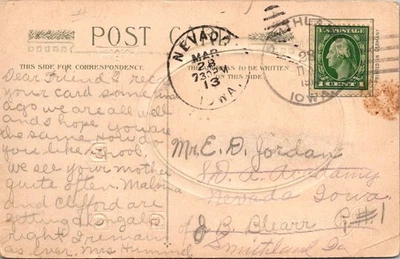 POST CARD
THIS SIDE FOR CORRESPONDENCE.
AS TO BE WRITTEN
ON THIS SIDE.
NEVADA
MAR
28
730PM
13
IOWA.
IOWA
U.S. POSTAGE
1 CENT 1
Dear Friend I rec
your card some time
ago we are all well
and I hope you are
the same How do
you like school
we see your mother
quite often.
and Clifford are
getting along all
right I remain
as ever. Mrs
Mr. E. D. Jordan
Nevada Iowa.
R#1
of J B
Smithland Ia